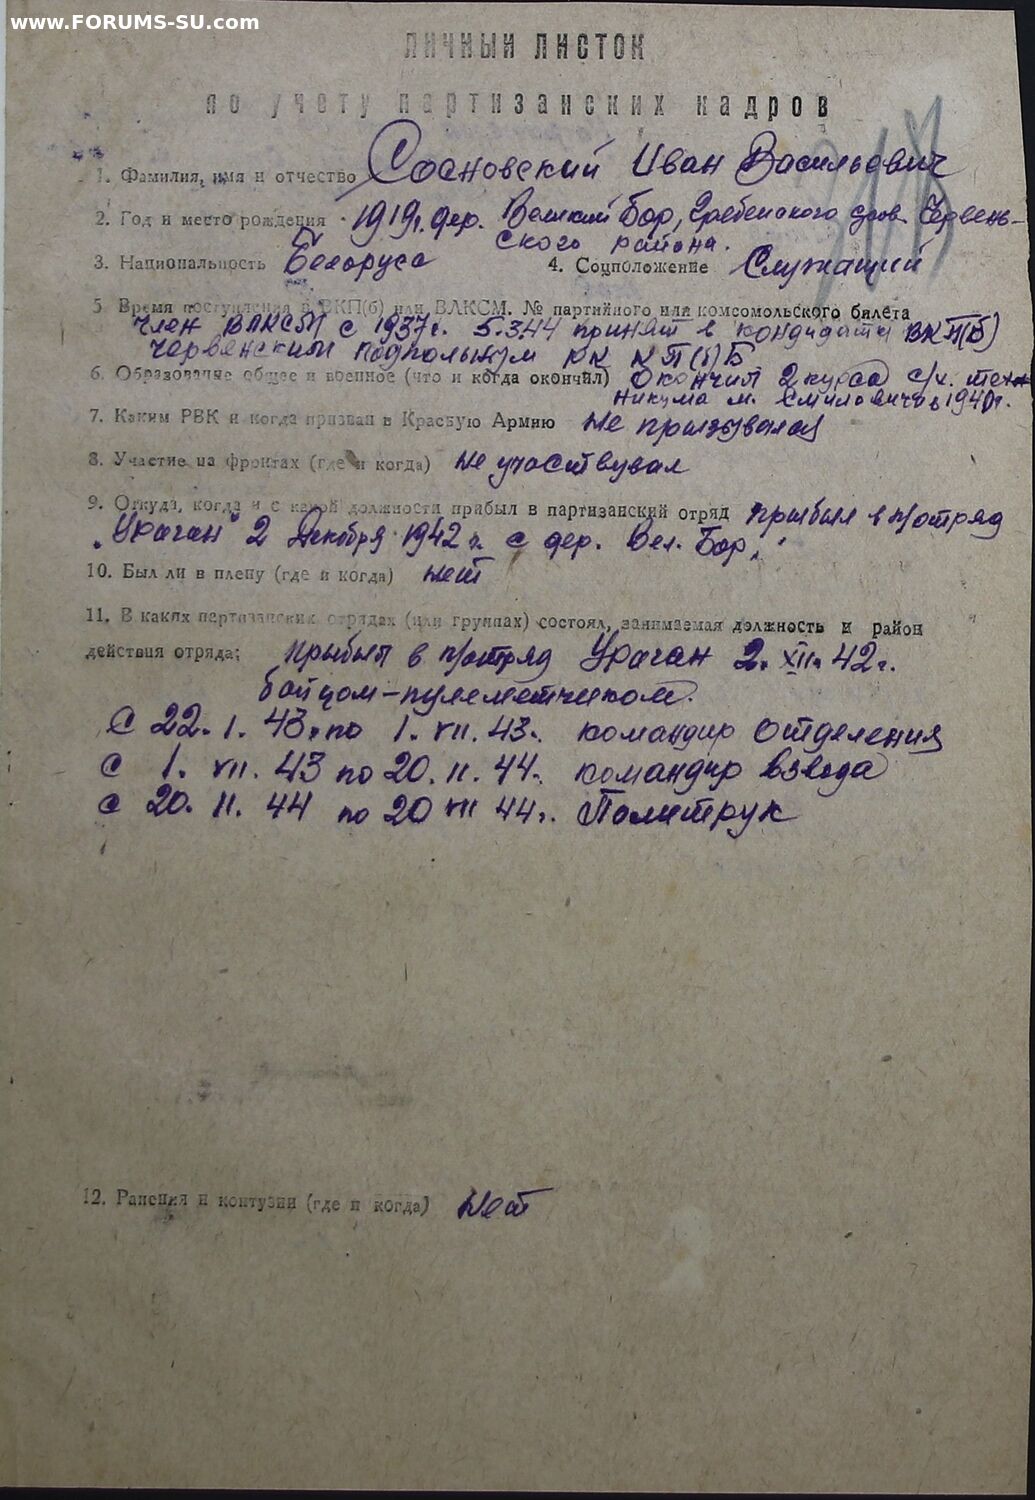 www.FORUMS-SU.com
ЛИЧНЫЙ ЛИСТОК
по учету партизанских кадров
1. Фамилия, имя и отчество Сосновский Иван Васильевич
2. Год и место рождения 1919г. дер. Великий Бор, Гребенского Червень-
ского района.
3. Национальность Белорус 4. Соцположение Служащий
5 Время поступления в ВКП(б) или ВЛКСМ. № партийного или комсомольского билета
Член ВЛКСМ с 1937г. 5.3.44 принят в кандидаты ВКП(б)
Червенским подпольным РК КП(б)Б
6. Образование общее и военное (что и когда окончил) Окончил 2 курса с/х. тех-
никума м. Смиловичи в 1940г.
7. Каким РВК и когда призван в Красную Армию Не призывался
8. Участие на фронтах (где и когда) Не участвувал
9. Откуда, когда и с какой должности прибыл в партизанский отряд прибыл в п/отряд
„Ураган" 2 Декабря 1942 г. с дер. Вел. Бор.
10. Был ли в плену (где и когда) Нет
11. В каких партизанских отрядах (или группах) состоял, занимаемая должность и район
действия отряда: прибыл в п/отряд Ураган 2. XII. 42г.
бойцом-пулеметчиком.
С 22. I. 43. по 1. VII. 43г. командир отделения
С 1. VII. 43 по 20. II. 44г. командир взвода
С 20. II. 44 по 20 VII 44г. Политрук
12. Ранения и контузии (где и когда) Нет